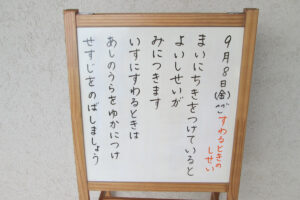 9月8日(金)
すわるときの
しせい
まいにちきをつけていると
よいしせいが
みにつきます
いすにすわるときは
あしのうらをゆかにつけ
せすじをのばしましょう